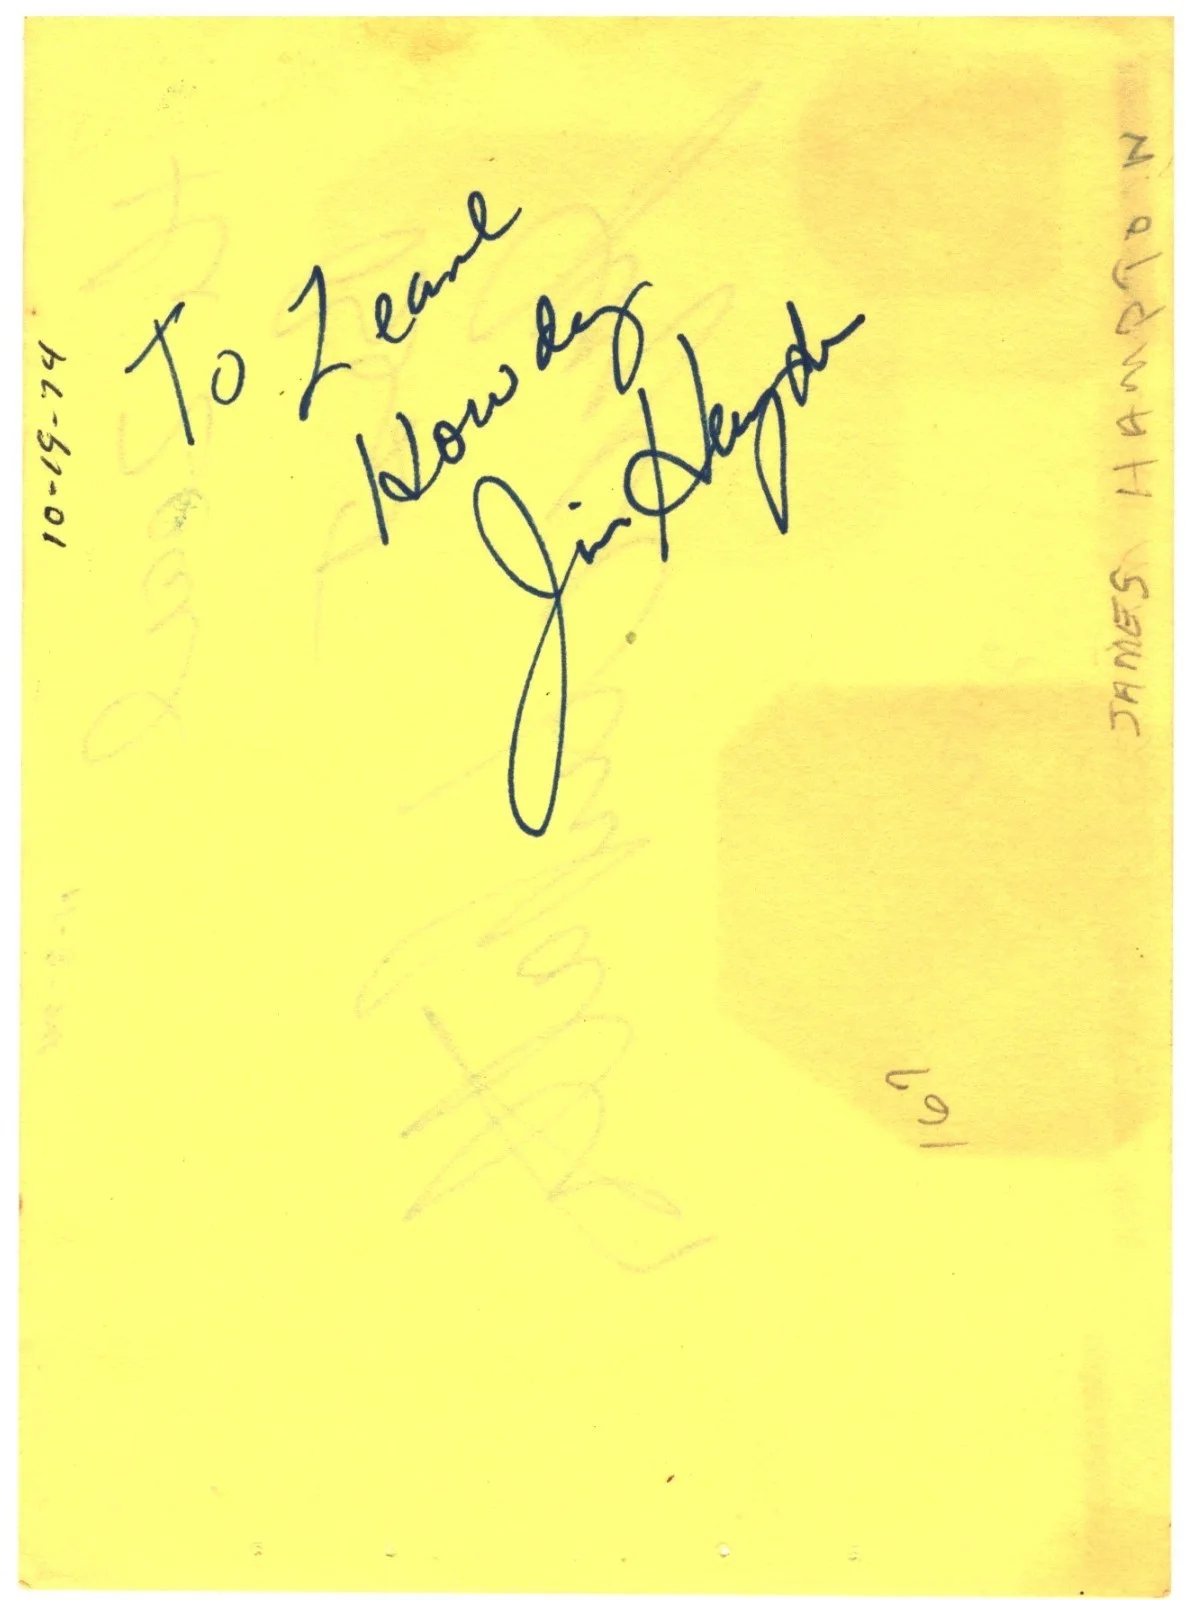 To Leane
Howdy
Jim Hampton
10-19-74
JAMES HAMPTON